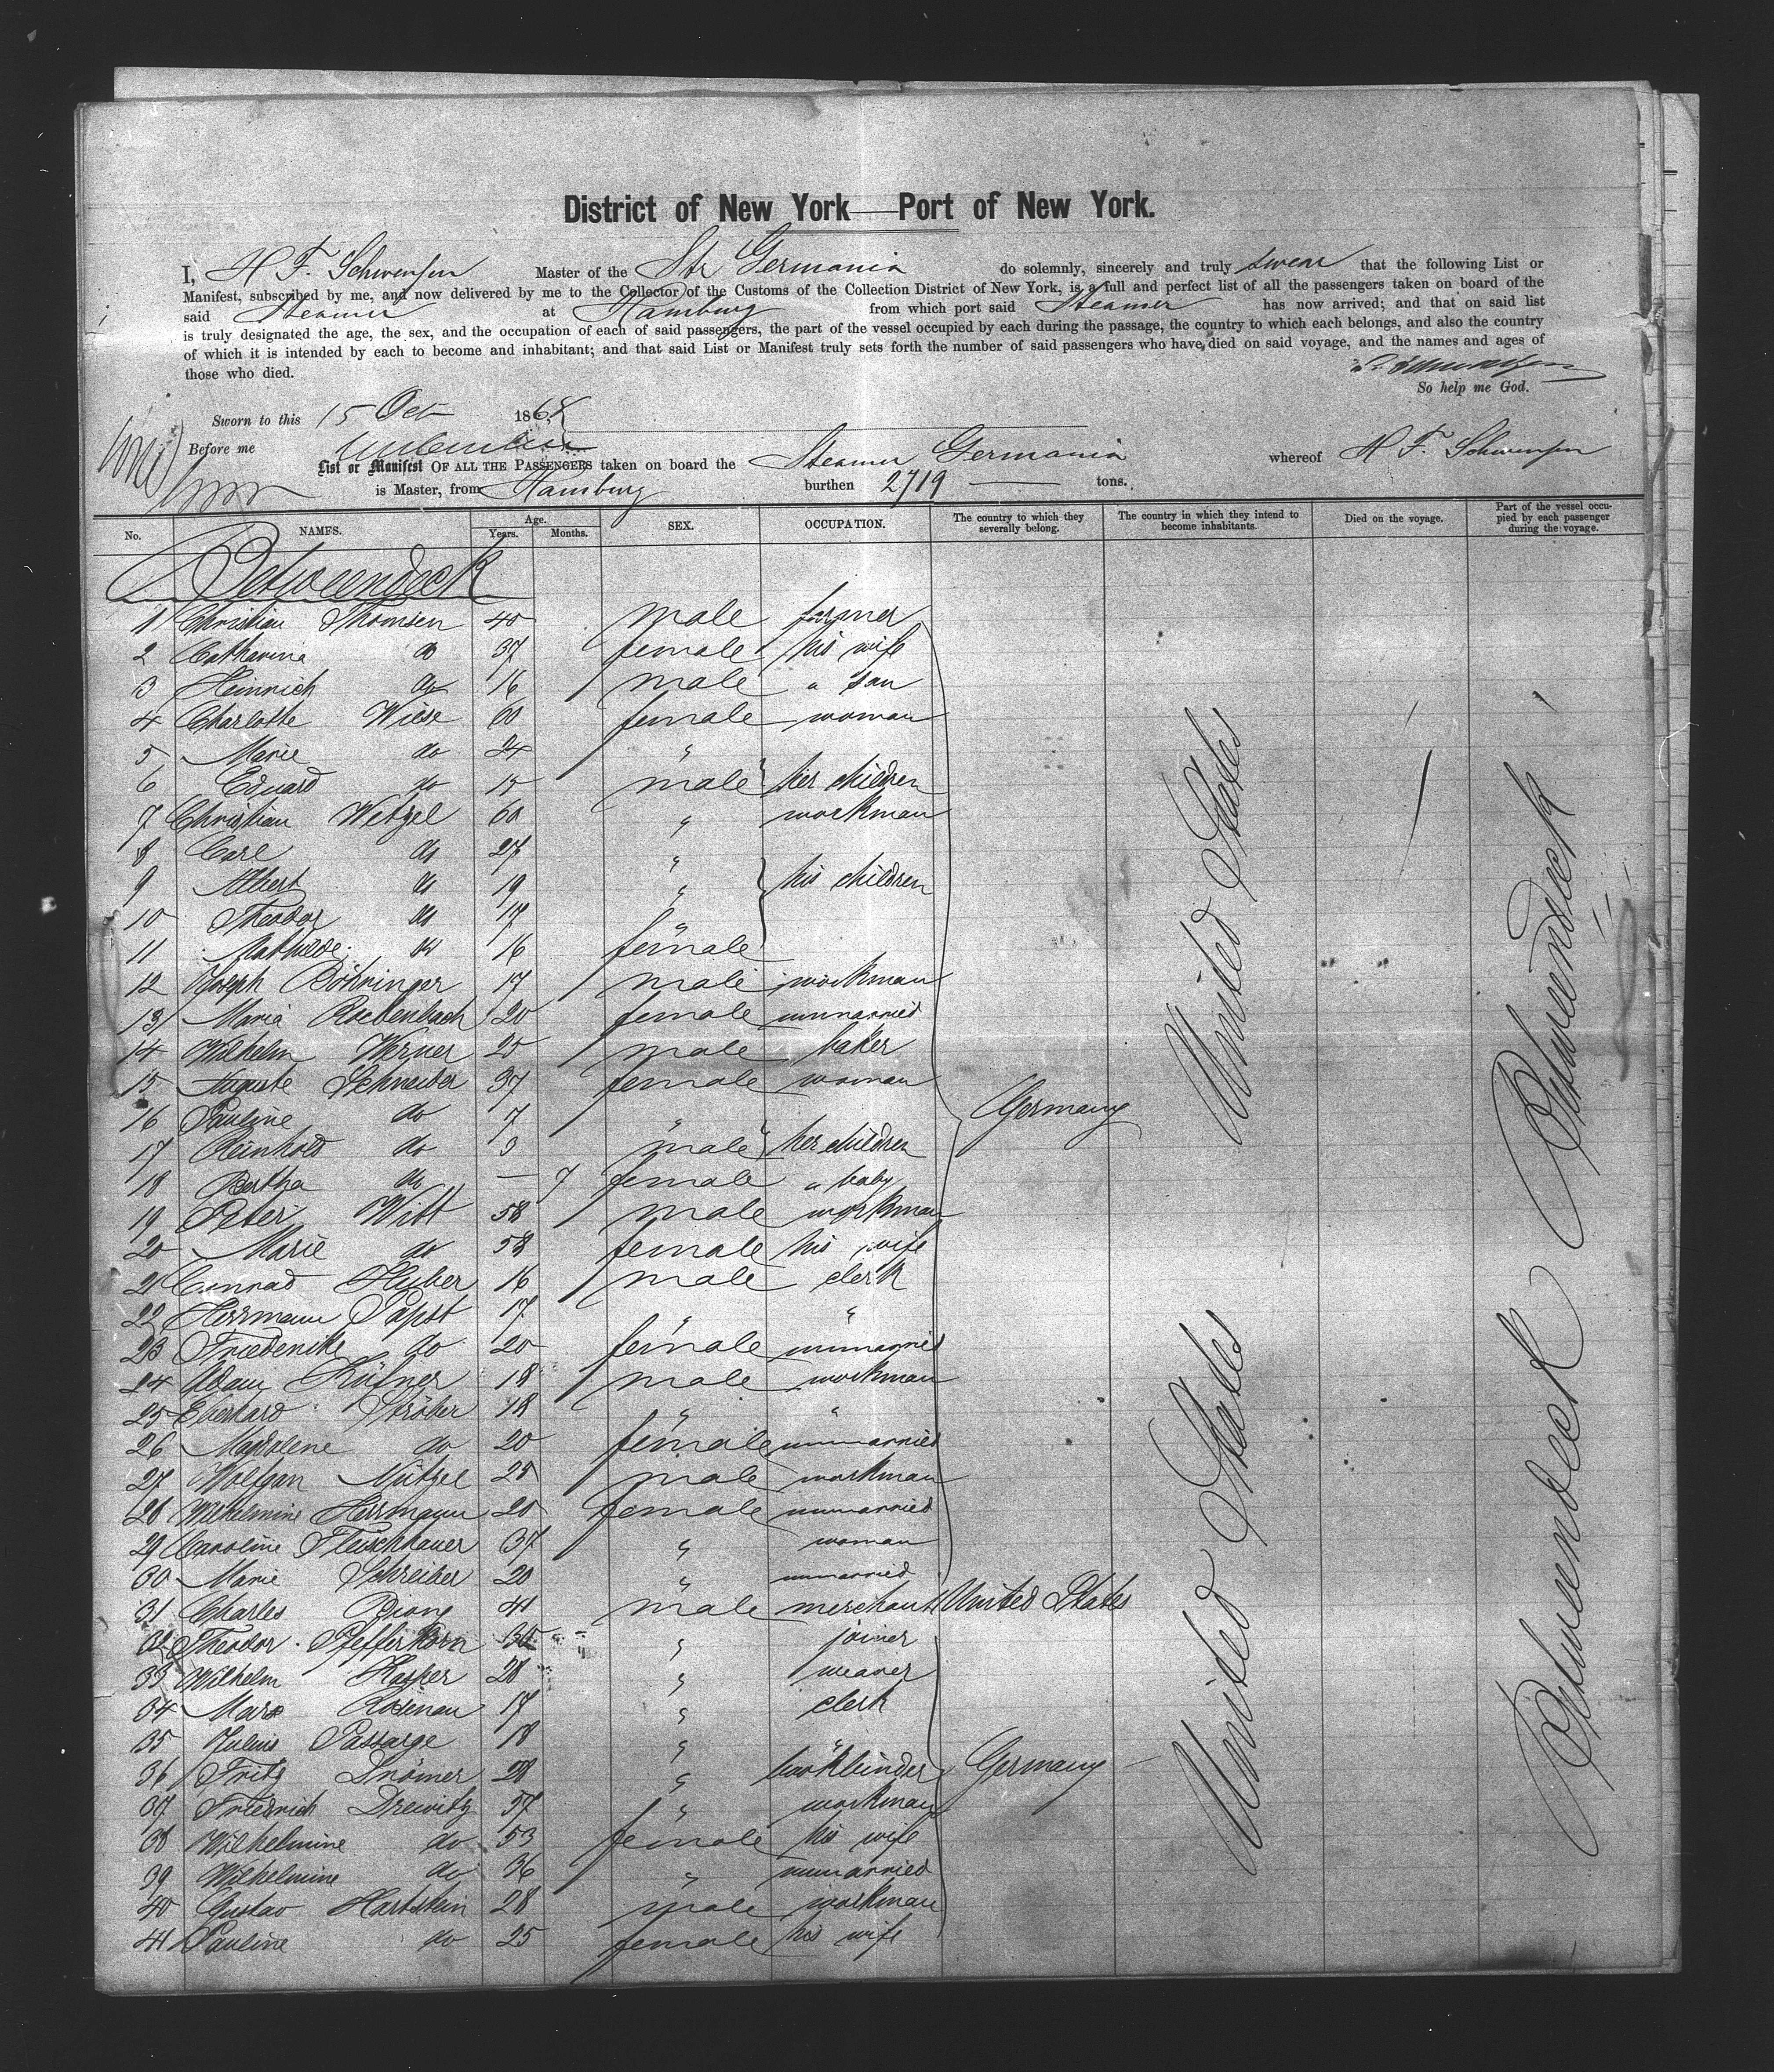 District of New York — Port of New York.
I, H F. Schwensen Master of the Str Germania do solemnly, sincerely and truly swear that the following List or
Manifest, subscribed by me, and now delivered by me to the Collector of the Customs of the Collection District of New York, is a full and perfect list of all the passengers taken on board of the
said Steamer at Hamburg from which port said Steamer has now arrived; and that on said list
is truly designated the age, the sex, and the occupation of each of said passengers, the part of the vessel occupied by each during the passage, the country to which each belongs, and also the country
of which it is intended by each to become and inhabitant; and that said List or Manifest truly sets forth the number of said passengers who have died on said voyage, and the names and ages of
those who died.
So help me God.
Sworn to this 15 Oct 1868
Before me
List or Manifest OF ALL THE PASSENGERS taken on board the Steamer Germania whereof H F. Schwensen
is Master, from Hamburg burthen 2719 tons.
No. NAMES. Age. Years. Months. SEX. OCCUPATION. The country to which they severally belong. The country in which they intend to become inhabitants. Died on the voyage. Part of the vessel occupied by each passenger during the voyage.
Betweendeck
1 Christian Thomsen 40 male farmer
2 Catharina do 37 female his wife
3 Heinrich do 16 male " son
4 Charlotte Wiese 60 female woman
5 Marie do 24 "
6 Eduard do 15 male her children
7 Christian Wetzel 60 " workman
8 Carl do 27 "
9 Albert do 19 " his children
10 Theodor do 17 "
11 Mathilde do 16 female
12 Joseph Böhringer 17 male workman
13 Maria Roebenbach 20 female unmarried
14 Wilhelm Werner 25 male baker
15 Auguste Schneider 37 female woman
16 Pauline do 7 "
17 Reinhold do 3 male her children
18 Bertha do — 7 female " baby
19 Peter Witt 58 male workman
20 Marie do 58 female his wife
21 Conrad Huber 16 male clerk
22 Herrmann Papst 17 " "
23 Friederike do 20 female unmarried
24 Adam Küfner 18 male workman
25 Eberhard Ströber 18 " "
26 Magdalene do 20 female unmarried
27 Wolfgan Nützel 25 male workman
28 Wilhelmine Herrmann 20 female unmarried
29 Caroline Fleischhauer 37 " woman
30 Marie Schreiber 20 " unmarried
Germany
31 Charles 41 male merchant United States
32 Theodor Pfefferkorn 36 " joiner
33 Wilhelm Kasper 28 " weaver
34 Marx Rosenau 17 " clerk
35 Julius Passarge 18 " "
36 Fritz Drömer 28 " bookbinder
37 Friedrich Drewitz 57 " workman
38 Wilhelmine do 53 female his wife
39 Wilhelmine do 36 " unmarried
40 Gustav Hartstein 28 male workman
41 Pauline do 25 female his wife
Germany
United States
United States
Betweendeck
Betweendeck